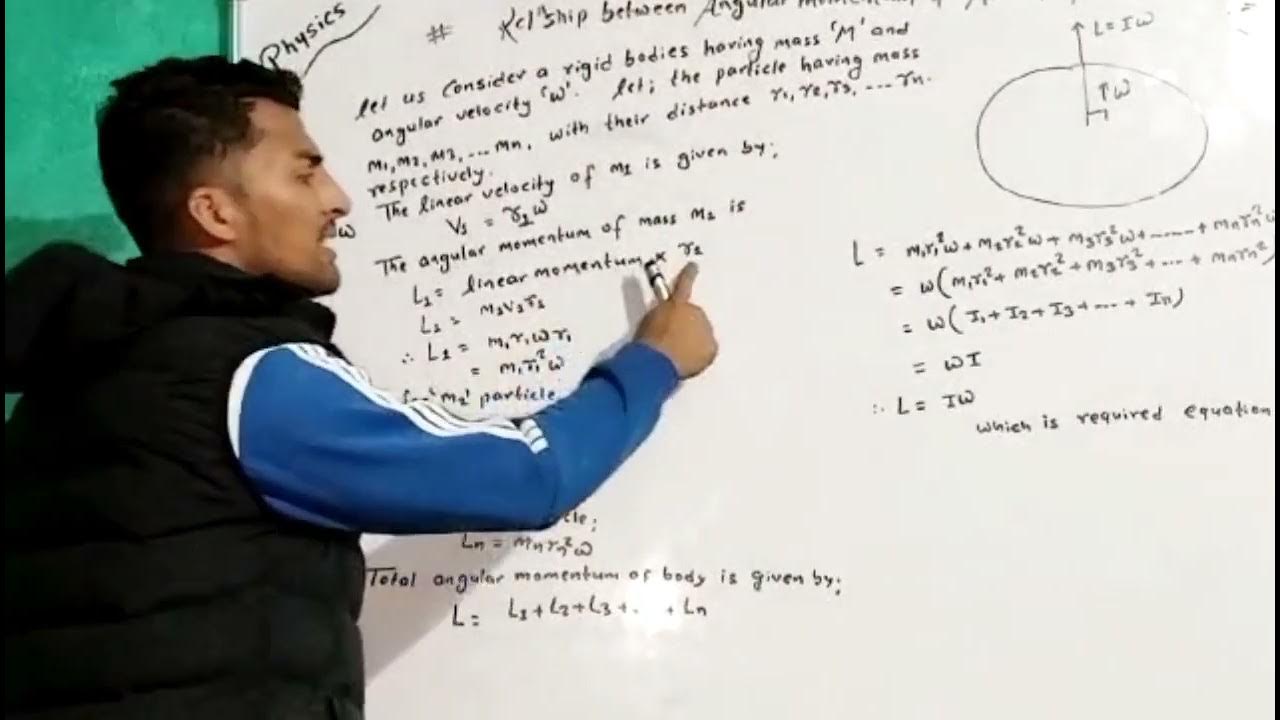 Physics
# Rel^n ship between Angular
let us consider a rigid bodies having mass 'M' and
angular velocity 'ω'. let; the particle having mass
m₁, m₂, m₃, ... mn, with their distance r₁, r₂, r₃, ... rn.
respectively.
The linear velocity of m₁ is given by;
V₁ = r₁ω
The angular momentum of mass m₁ is
L₁ = linear momentum × r₁
L₁ = m₁v₁r₁
∴ L₁ = m₁r₁ωr₁
= m₁r₁²ω
'm₂' particle
Ln = mnrn²ω
Total angular momentum of body is given by;
L = L₁+L₂+L₃+... + Ln
L = Iω
↑ω
L = m₁r₁²ω + m₂r₂²ω + m₃r₃²ω + ...... + mnrn²ω
= ω(m₁r₁² + m₂r₂² + m₃r₃² + ... + mnrn²)
= ω(I₁+I₂+I₃+...+In)
= ωI
∴ L = Iω
which is required equation
ω